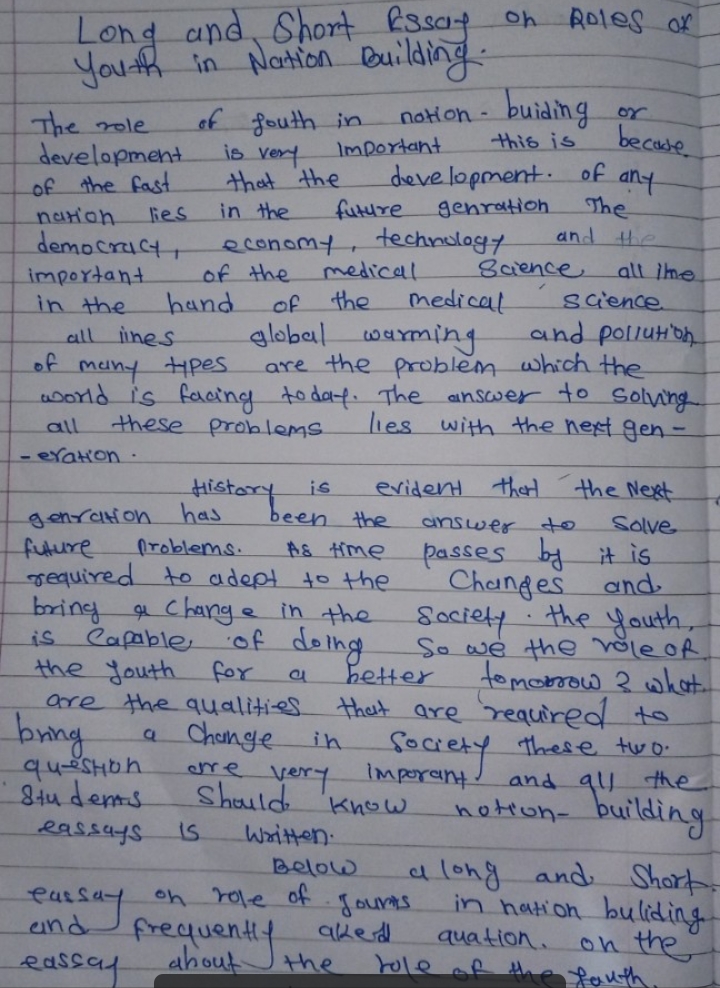 Long and Short Essay on Roles of
Youth in Nation Building.
The role of fouth in nation - buiding or
development is very important this is becaue
of the fast that the development. of any
nation lies in the future genration The
democracy, economy, technology and the
important of the medical Science all ime
in the hand of the medical science
all lines global warming and pollution
of many types are the problem which the
world is facing today. The answer to solving
all these problems lies with the next gen-
-eration.
History is evident that the Next
genration has been the answer to solve
future problems. As time passes by it is
required to adept to the Changes and
bring a change in the society. the youth,
is Capable of doing so we the role of
the youth for a better tomorrow? what
are the qualities that are required to
bring a Change in society these two.
question are very imporant and all the
Students Should know notion- building
eassays is written.
Below a long and Short
eassay on role of in nation buliding
and frequently aked quation. on the
eassay about the role of the fauth.